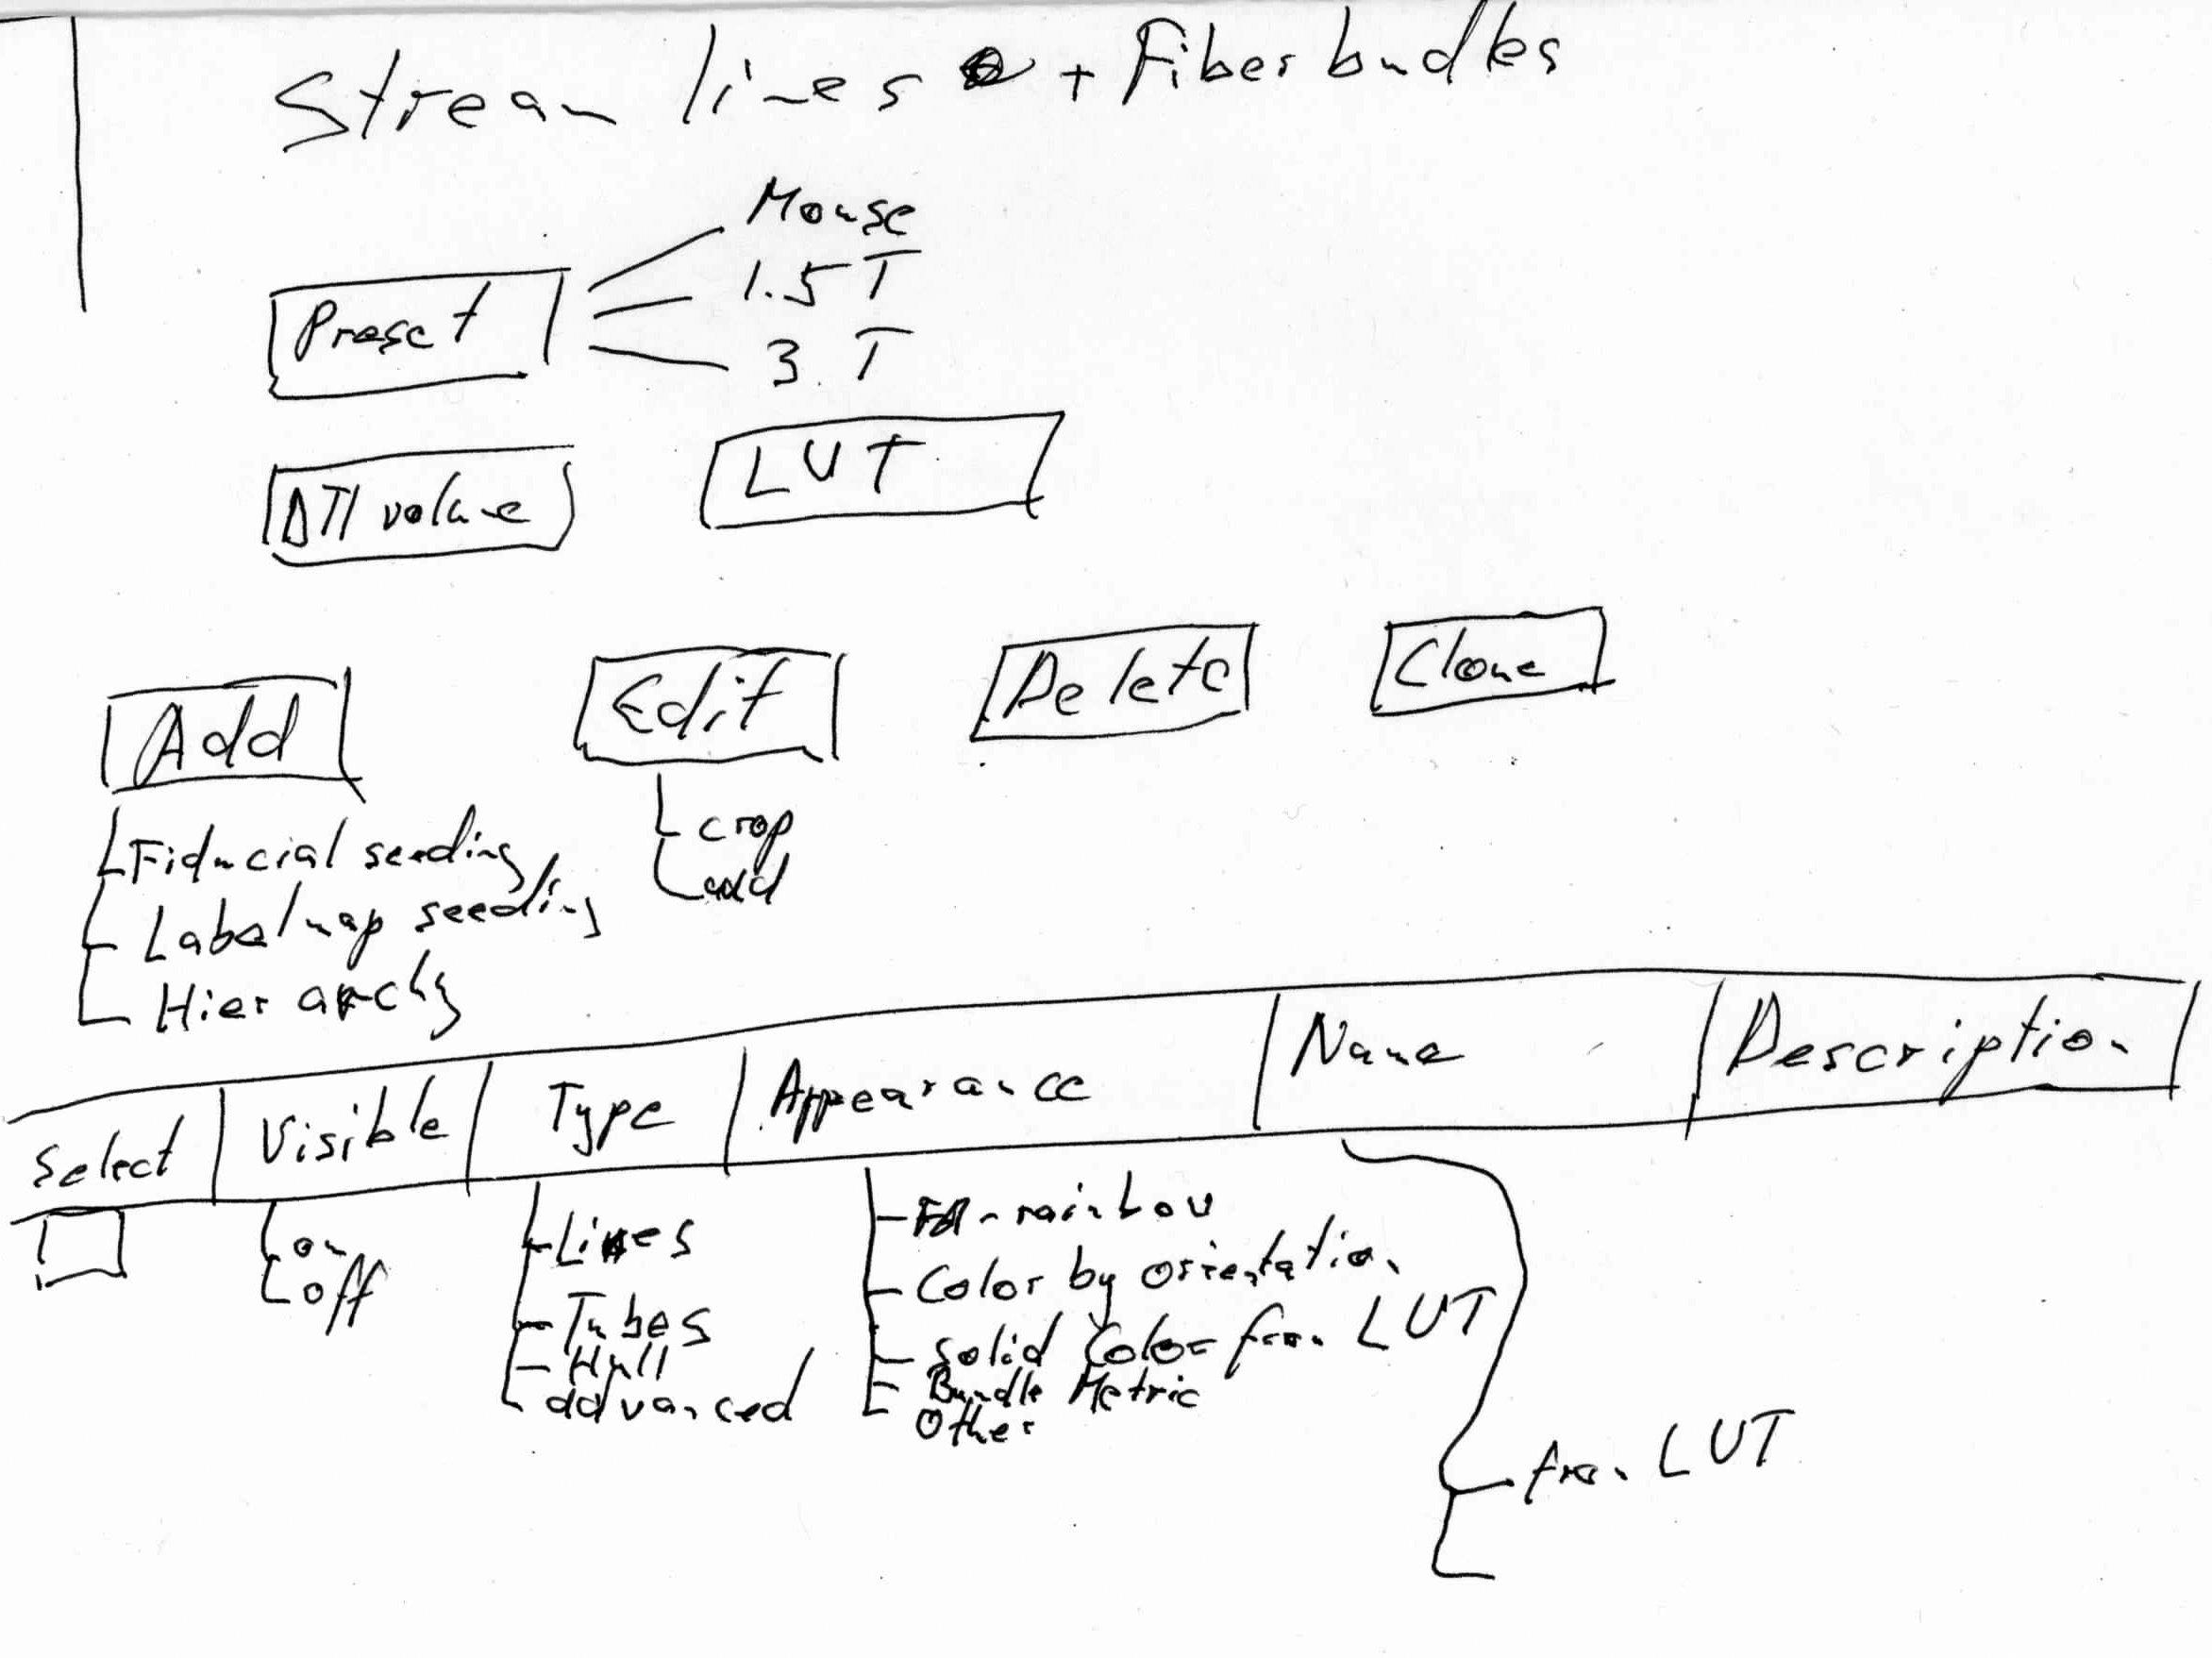 Stream lines + Fiber bundles
Mouse
1.5 T
Preset
3 T
LUT
DTI volume
Add
Edit
Delete
Clone
crop
add
Fiducial seeding
Labelmap seeding
Hierarchy
Select
Visible
Type
Appearance
Name
Description
on
off
Lines
Tubes
Hull
advanced
FA-rainbow
Color by orientation
Solid Color from LUT
Bundle Metric
Other
from LUT